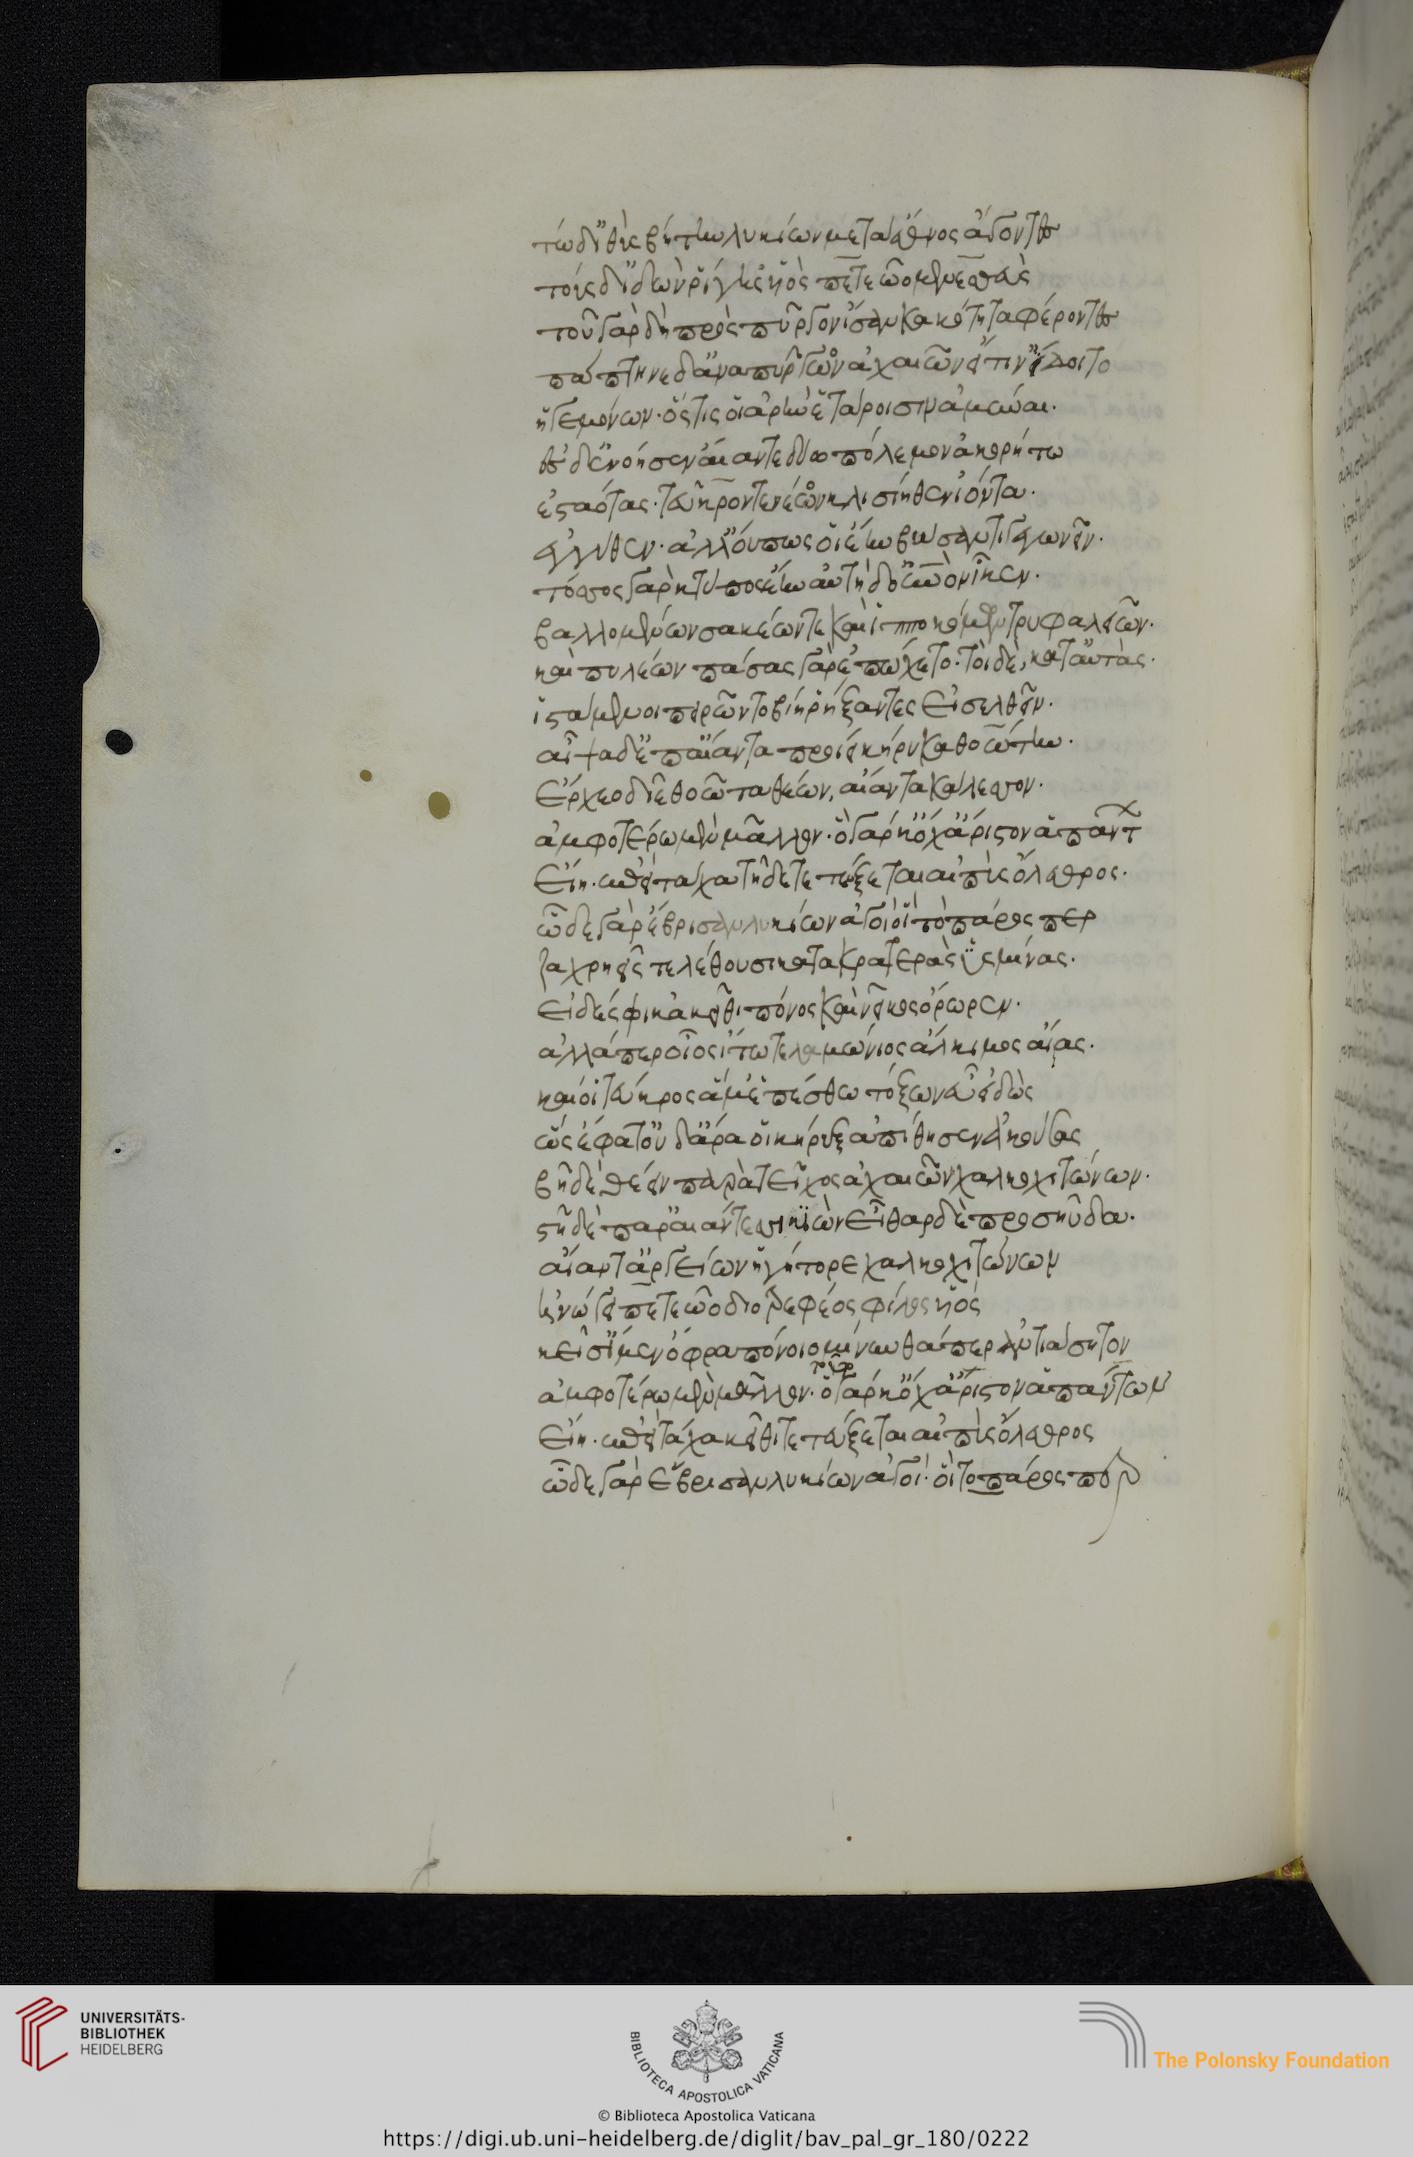 τώ δ' ἰθὺς βήτην λυκίων μέγα ἔθνος ἄγοντες
τοὺς δ' ἰδὼν ῥίγησ' υἱὸς πετεῶο μενεσθεὺς
τοῦ γὰρ δὴ πρὸς πύργον ἴσαν κακότητα φέροντες
πάπτηνε δ' ἄνα πύργων ἀχαιῶν εἴ τιν' ἴδοιτο
ἡγεμόνων· ὅστις οἱ ἀρὴν ἑτάροισιν ἀμύναι·
ἐς δ' ἐνόησεν αἴαντε δύω πόλεμον ἀκορήτω
ἑσταότας· τεῦκρον τε νέων κλισίηθεν ἰόντα·
ἐγγύθεν· ἀλλ' οὔπως οἱ ἔην βώσαντι γεγωνεῖν·
τόσσος γὰρ κτύπος ἔην αὐτὴ δ' οὐρανὸν ἷκεν·
βαλλομένων σακέων τε καὶ ἱπποκόμων τρυφαλειῶν·
καὶ πυλέων πάσας γὰρ ἐπώχετο· τοὶ δὲ, κατ' αὐτὰς·
ἱστάμενοι πειρῶντο βίῃ ῥήξαντες εἰσελθεῖν·
αἶψα δ' ἐπ' αἴαντα προίει κήρυκα θοώτην·
ἔρχεο δῖε θοῶτα θέων, αἴαντα κάλεσσον·
ἀμφοτέρω μὲν μᾶλλον· ὃ γάρ κ' ὄχ' ἄριστον ἁπάντων
εἴη· ἐπεὶ τάχα τῇδε τετεύξεται αἰπὺς ὄλεθρος·
ὧδε γὰρ ἔβρισαν λυκίων ἀγοὶ οἳ τὸ πάρος περ
ζαχρηεῖς τελέθουσι κατὰ κρατερὰς ὑσμίνας·
εἰ δέ σφι κἀκεῖθι πόνος καὶ νεῖκος ὄρωρεν·
ἀλλά περ οἶος ἴτω τελαμώνιος ἄλκιμος αἴας·
καί οἱ τεῦκρος ἅμ' ἑπέσθω τόξων εὖ εἰδὼς
ὣς ἔφατ' οὐδ' ἄρα οἱ κήρυξ ἀπίθησεν ἀκούσας
βῆ δὲ θέειν παρὰ τεῖχος ἀχαιῶν χαλκοχιτώνων·
στῆ δὲ παρ' αἰάντεσσι κιὼν εἶθαρ δὲ προσηύδα·
αἴαντ' ἀργείων ἡγήτορε χαλκοχιτώνων
ἠνώγει πετεῶο διοτρεφέος φίλος υἱὸς
κεῖσ' ἴμεν ὄφρα πόνοιο μίνυνθά περ ἀντιάσητον
ἀμφοτέρω μὲν μᾶλλον· ὃ γάρ κ' ὄχ' ἄριστον ἁπάντων
εἴη· ἐπεὶ τάχα κεῖθι τετεύξεται αἰπὺς ὄλεθρος
ὧδε γὰρ ἔβρισαν λυκίων ἀγοί· οἳ τὸ πάρος περ
UNIVERSITÄTS-
BIBLIOTHEK
HEIDELBERG
BIBLIOTECA APOSTOLICA VATICANA
The Polonsky Foundation
© Biblioteca Apostolica Vaticana
https://digi.ub.uni-heidelberg.de/diglit/bav_pal_gr_180/0222